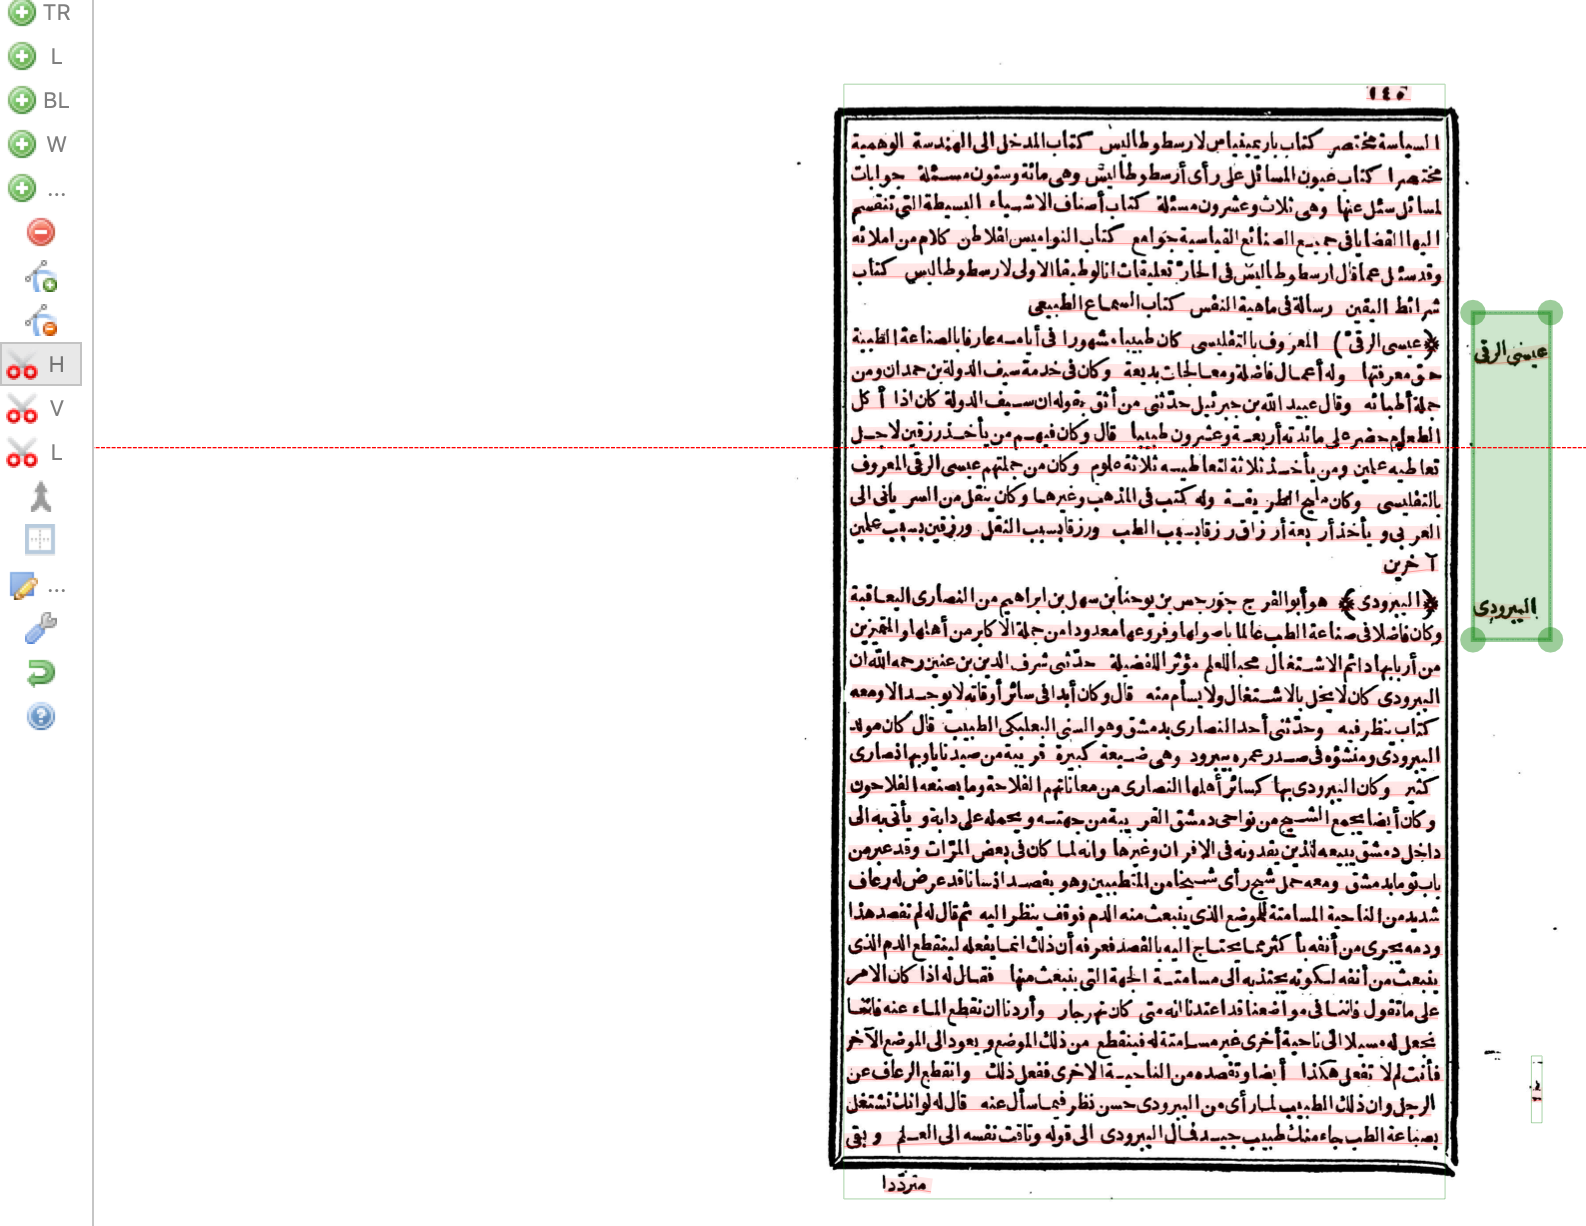 TR
L
BL
W
...
H
V
L
...
١٤٠
السياسة مختصر كتاب باريمينياس لارسطوطاليس كتاب المدخل الى الهندسة الوهمية
مختصرا كتاب عيون المسائل على رأى أرسطوطاليس وهى مائة وستون مسئلة جوابات
لمسائل سئل عنها وهى ثلاث وعشرون مسئلة كتاب أصناف الاشياء البسيطة التى تنقسم
اليها القضايا فى جميع الصنائع القياسية جوامع كتاب النواميس افلاطن كلام من املائه
وقد سئل عما قال ارسطوطاليس فى الحار تعليقات انالوطيقا الاولى لارسطوطاليس كتاب
شرائط اليقين رسالة فى ماهية النفس كتاب السماع الطبيعى
(عيسى الرقى) المعروف بالتفليسى كان طبيبا مشهورا فى أيامه عارفا بالصناعة الطبية
حق معرفتها وله أعمال فاضلة ومعالجات بديعة وكان فى خدمة سيف الدولة بن حمدان ومن
جملة أطبائه وقال عبيد الله بن جبرئيل حدّثنى من أثق بقوله ان سيف الدولة كان اذا أكل
الطعام حضر على مائدته أربعة وعشرون طبيبا قال وكان فيهم من يأخذ رزقين لاجل
تعاطيه علمين ومن يأخذ ثلاثة لتعاطيه ثلاثة علوم وكان من جملتهم عيسى الرقى المعروف
بالتفليسى وكان مليح الطريقة وله كتب فى المذهب وغيرها وكان ينقل من السريانى الى
العربى ويأخذ أربعة أرزاق رزقا بسبب الطب ورزقا بسبب النقل ورزقين بسبب علمين
آخرين
(اليبرودى) هو أبو الفرج جورجس بن يوحنا بن سهل بن ابراهيم من النصارى اليعاقبة
وكان فاضلا فى صناعة الطب عالما باصولها وفروعها معدودا من جملة الاكابر من أهلها والمتميزين
من أربابها دائم الاشتغال محبا للعلم مؤثرا للفضيلة حدّثنى شرف الدين بن عنين رحمه الله ان
اليبرودى كان لا يخل بالاشتغال ولا يسأم منه قال وكان أبدا فى سائر أوقاته لا يوجد الا ومعه
كتاب ينظر فيه وحدّثنى أحد النصارى بدمشق وهو السنى البعلبكى الطبيب قال كان مولد
اليبرودى ومنشؤه فى صدر عمره بيبرود وهى ضيعة كبيرة قريبة من صيدنايا وبها نصارى
كثير وكان اليبرودى بها كسائر أهلها النصارى من معاناتهم الفلاحة وما يصنعه الفلاحون
وكان أيضا يجمع الشيح من نواحى دمشق القريبة من جهته ويحمله على دابة ويأتى به الى
داخل دمشق يبيعه للذين يقدونه فى الافران وغيرها وانه لما كان فى بعض المرّات وقد عبر من
باب توما بدمشق ومعه حمل شيح رأى شيخا من المتطببين وهو يفصد انسانا قد عرض له رعاف
شديد من الناحية المسامتة للموضع الذى ينبعث منه الدم فوقف ينظر اليه ثم قال له لم تفصد هذا
ودمه يجرى من أنفه بأكثر مما يحتاج اليه بالفصد فعرفه أن ذلك انما يفعله لينقطع الدم الذى
ينبعث من أنفه لكونه يجتذبه الى مسامتة الجهة التى ينبعث منها فقال له اذا كان الامر
على ما تقول فاننا فى مواضعنا قد اعتدنا انه متى كان نهر جار وأردنا ان نقطع الماء عنه فاننا
نجعل له مسيلا الى ناحية أخرى غير مسامتة له فينقطع من ذلك الموضع ويعود الى الموضع الآخر
فأنت لم لا تفعل هكذا أيضا وتفصده من الناحية الاخرى ففعل ذلك وانقطع الرعاف عن
الرجل وان ذلك الطبيب لما رأى من اليبرودى حسن نظر فيما سأل عنه قال له لو انك تشتغل
بصناعة الطب جاء منك طبيب جيد فمال اليبرودى الى قوله وتاقت نفسه الى العلم وبقى
متردّدا
عيسى الرقى
اليبرودى